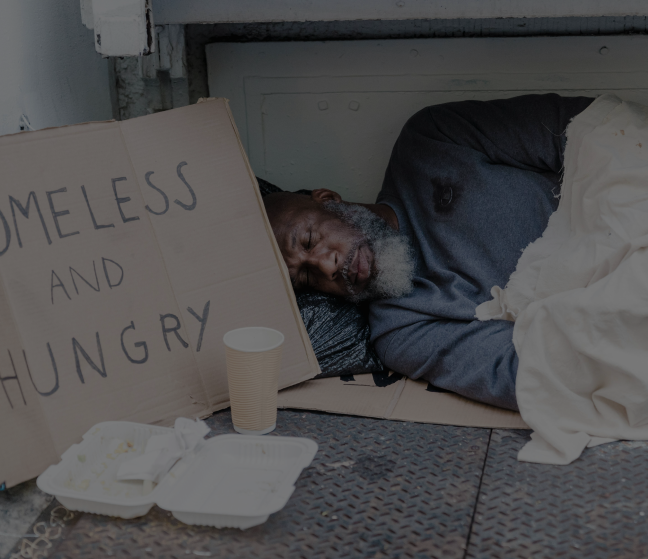 OMELESS
AND
HUNGRY